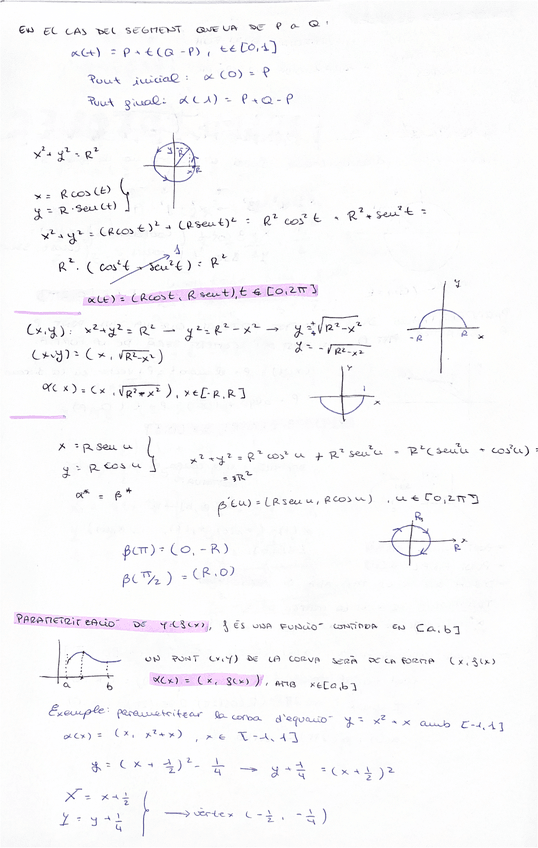 EN EL CAS DEL SEGMENT QUE VA DE P a Q:
α(t) = P + t(Q-P), t∈[0,1]
Punt inicial: α(0) = P
Punt final: α(1) = P+Q-P
x²+y² = R²
x = Rcos(t)
y = R·sen(t)
x²+y² = (Rcos t)² + (Rsen t)² = R² cos²t + R²+sen²t =
R²·(cos²t + sen²t) = R²
1
α(t) = (Rcos t, R sen t), t ∈ [0,2π]
(x,y): x²+y² = R² → y² = R²-x² → y = +√R²-x²
y = -√R²-x²
(x,y) = (x, √R²-x²)
y
-R R x
α(x) = (x, √R²-x²), x∈[-R,R]
Y
1
x
x = R sen u
y = R cos u
x²+y² = R² cos² u + R² sen² u = R²(sen²u + cos²u) =
= R²
α* = β*
β(u) = (R sen u, R cos u), u ∈ [0,2π]
R
x
R
β(π) = (0,-R)
β(π/2) = (R,0)
PARAMETRITZACIÓ DE y=f(x), f ÉS UNA FUNCIÓ CONTINUA EN [a,b]
UN PUNT (x,y) DE LA CORVA SERÀ DE LA FORMA (x, f(x)
a b
α(x) = (x, f(x)), AMB x∈[a,b]
Exemple: parametritzar la corba d'equació y = x² + x amb [-1,1]
α(x) = (x, x²+x), x ∈ [-1,1]
y = (x + 1/2)² - 1/4 → y + 1/4 = (x + 1/2)²
X = x + 1/2
Y = y + 1/4
→ vèrtex (-1/2, -1/4)